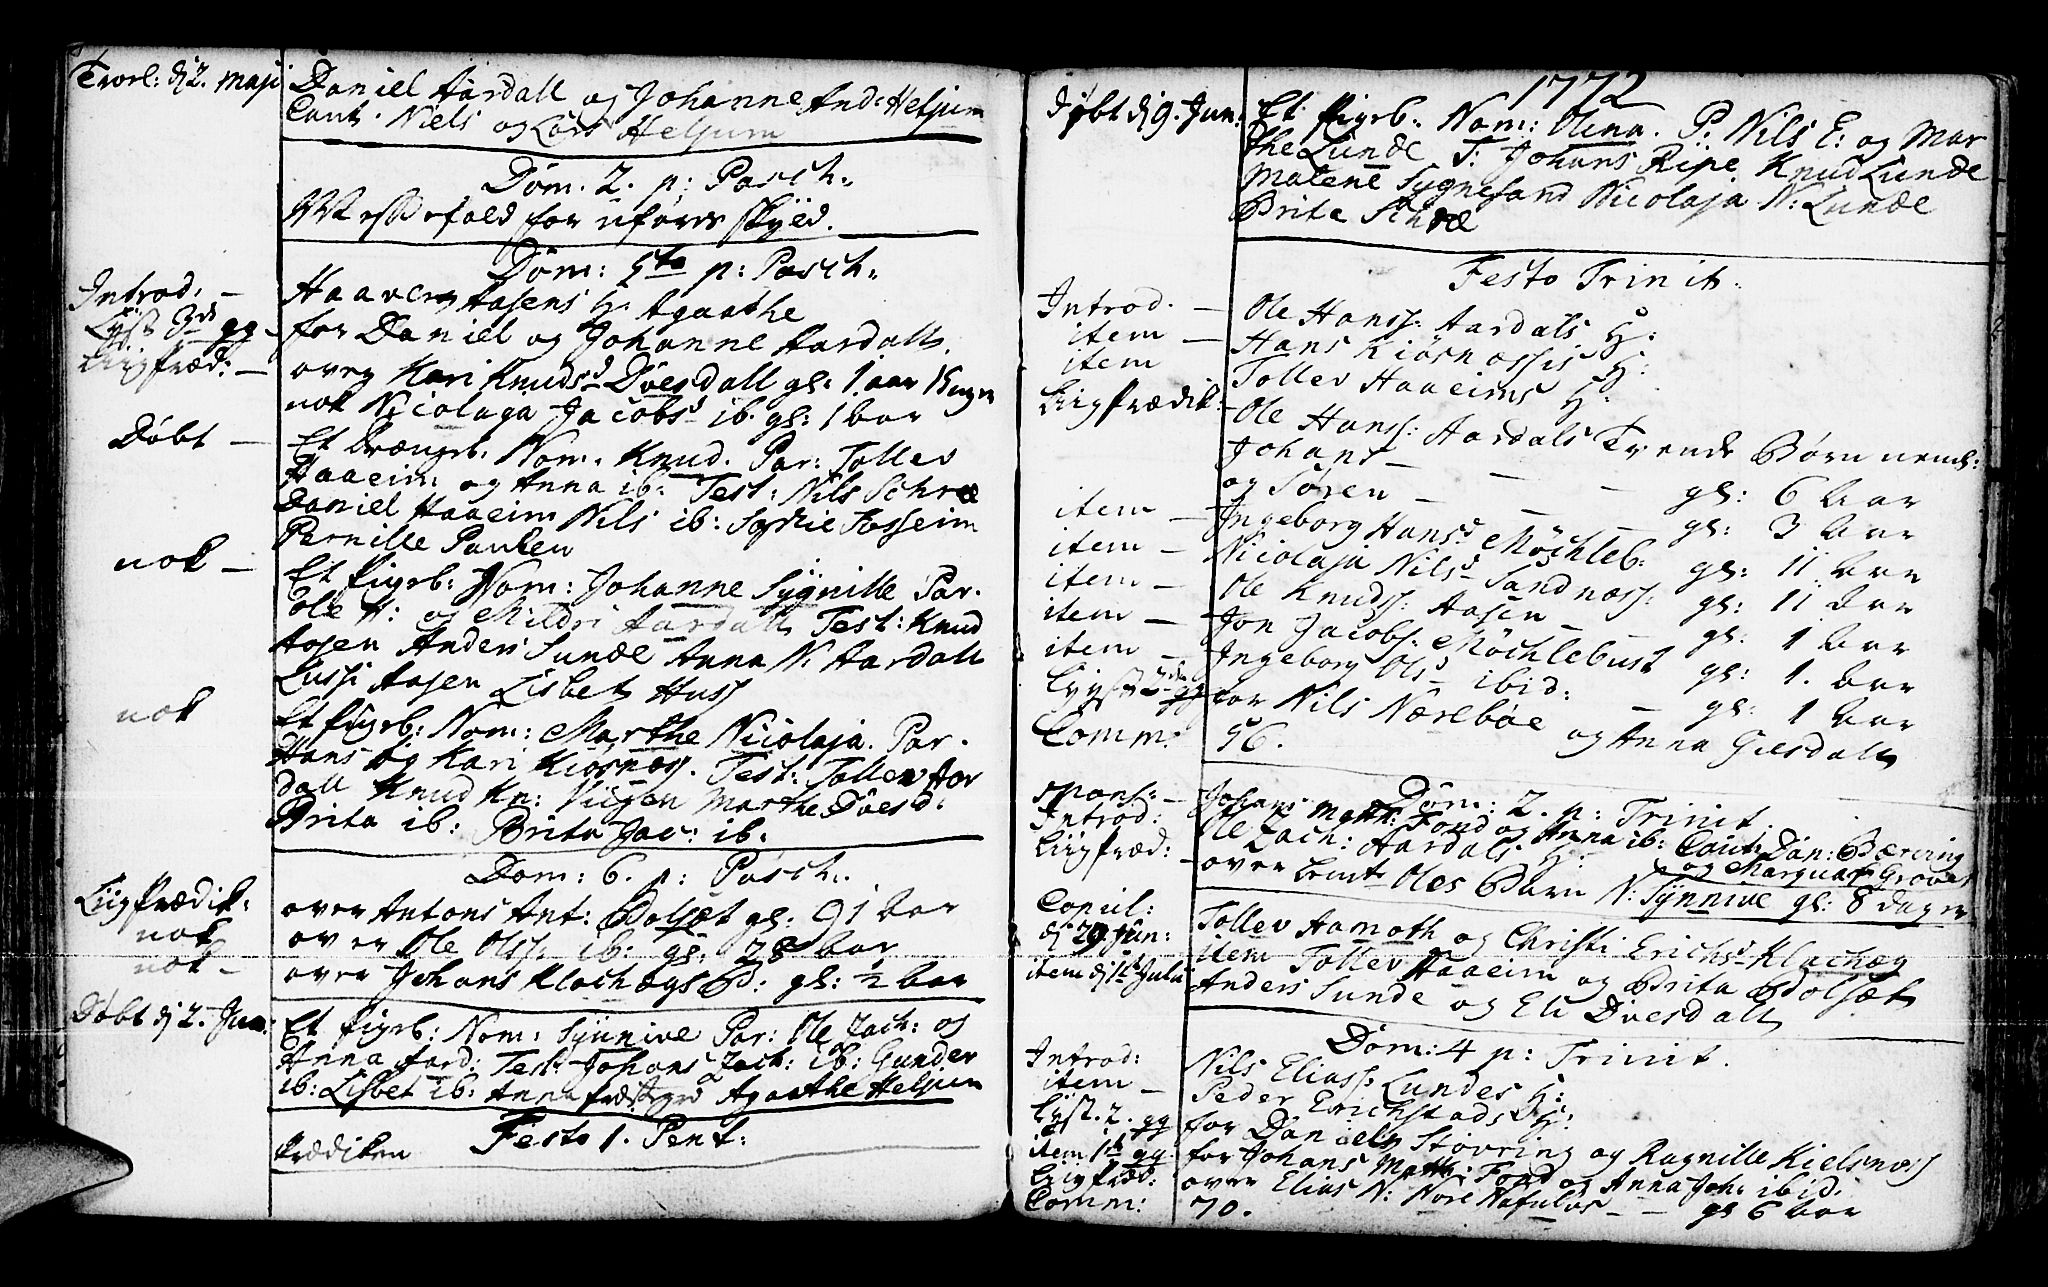 Trorl: dj 2. Maji Daniel Aardall og Johanne And: Heljum
Caut. Niels og Lars Heljum
Dom. 2. p: Pasch:
Messefald for uføres skyld.
Dom: 5ta p: Pasch:
Introd: — Haaven Aasens H: Agaathe
Lyst 3de gg — for Daniel og Johanne Aardall
Liigpræd: — over Kari Knudsd Døesdall gl: 1. aar 15 uger
nok Nicolaya Jacobsd ib. gl: 1 aar
Døbt — Et Drængb: Nom: Knud. Par: Tollev
Haaeim og Anna ib: Test: Nils Schree
Daniel Haaeim Nils ib: Sophie Fosseim
Pernille Paulen
nok — Et Pigeb: Nom: Johanne Sygnille Par:
Ole H: og Mildri Aardall Test: Knud
Aasen Anders Sunde Anna N: Aardall
Lussi Aasen Lisbet Huss
nok Et Pigeb: Nom: Marthe Nicolaja. Par:
Hans og Kari Kiøsnæss. Test: Tollev Aar
dall Knud Kn: Viigen Marthe Døesd:
Brita ib: Brita Jac: ib:
Dom: 6. p: Pasch:
Liigprædik: over Antons Ant: Bolsæt gl: 91 Aar
nok over Ole Olss: ib: gl: 28 Aar
nok — over Johans Klachægs B: gl: ½ Aar
Døbt dj 2. Jun: Et Pigeb: Nom: Synnive Par: Ole Zach: og
Anna Aard: Test: Johans Zach: ib: Gunder
ib: Lisbet ib: Anna Præstegrd Agaathe Heljum
Festo 1. Pent:
Prædiken
1772
Døbt dj 9. Jun: Et Pigeb: Nom: Olina. P: Nils E: og Mar
the Lunde T: Johans Ripe Knud Lunde
Malene Sygnesand Nicolaja N: Lunde
Brite Schree
Festo Trinit:
Introd. — Ole Hanss: Aardals H:
item — Hans Kiøsnæssis H:
item Tollev Haaeims H:
Liigprædik: — Ole Hanss: Aardals Tvende Børn neml:
Johans — — — gl: 6 Aar
og Søren — — — gl: 3 Aar
item — Ingeborg Hansd Møchleb: gl: 11 Aar
item — Nicolaja Nilsd Sandnæss: gl: 11 Aar
item — Ole Knudss: Aasen — gl: 1 Aar
item — Jon Jacobs: Møchlebust gl: 1. Aar
item — Ingeborg Olsd ibid: — gl: 1 Aar
Lyst 3de gg for Nils Nærebøe og Anna Giesdall
Comm: 56.
Dom: 2. p: Trinit.
Spons: — Johans Matth: Fond og Anna ib: Caut: Dan: Bærring
og Marquar Grovet
Introd: Ole Zach: Aardals H:
Liigpræd: — over bemte Oles Barn N: Synnive gl: 8 Dager
Copul: Tollev Aamoth og Christi Erichsd Klachæg
dj 29 Jun: item Tollev Haaeim og Brita Bolsæt
item dj 1st Julii Anders Sunde og Eli Døesdall
Dom: 4 p: Trinit.
Introd: Nils Eliass: Lundes H:
item — Peder Erichstads H:
Lyst. 2. gg for Daniel Støvring og Ragnille Kielsnæss
item 1ste gg. for Johans Matth: Fond og Anna Joh: ibid:
Liigpræd: over Elias N: Nore Hafulas — — gl 6 Aar
Comm: 70.